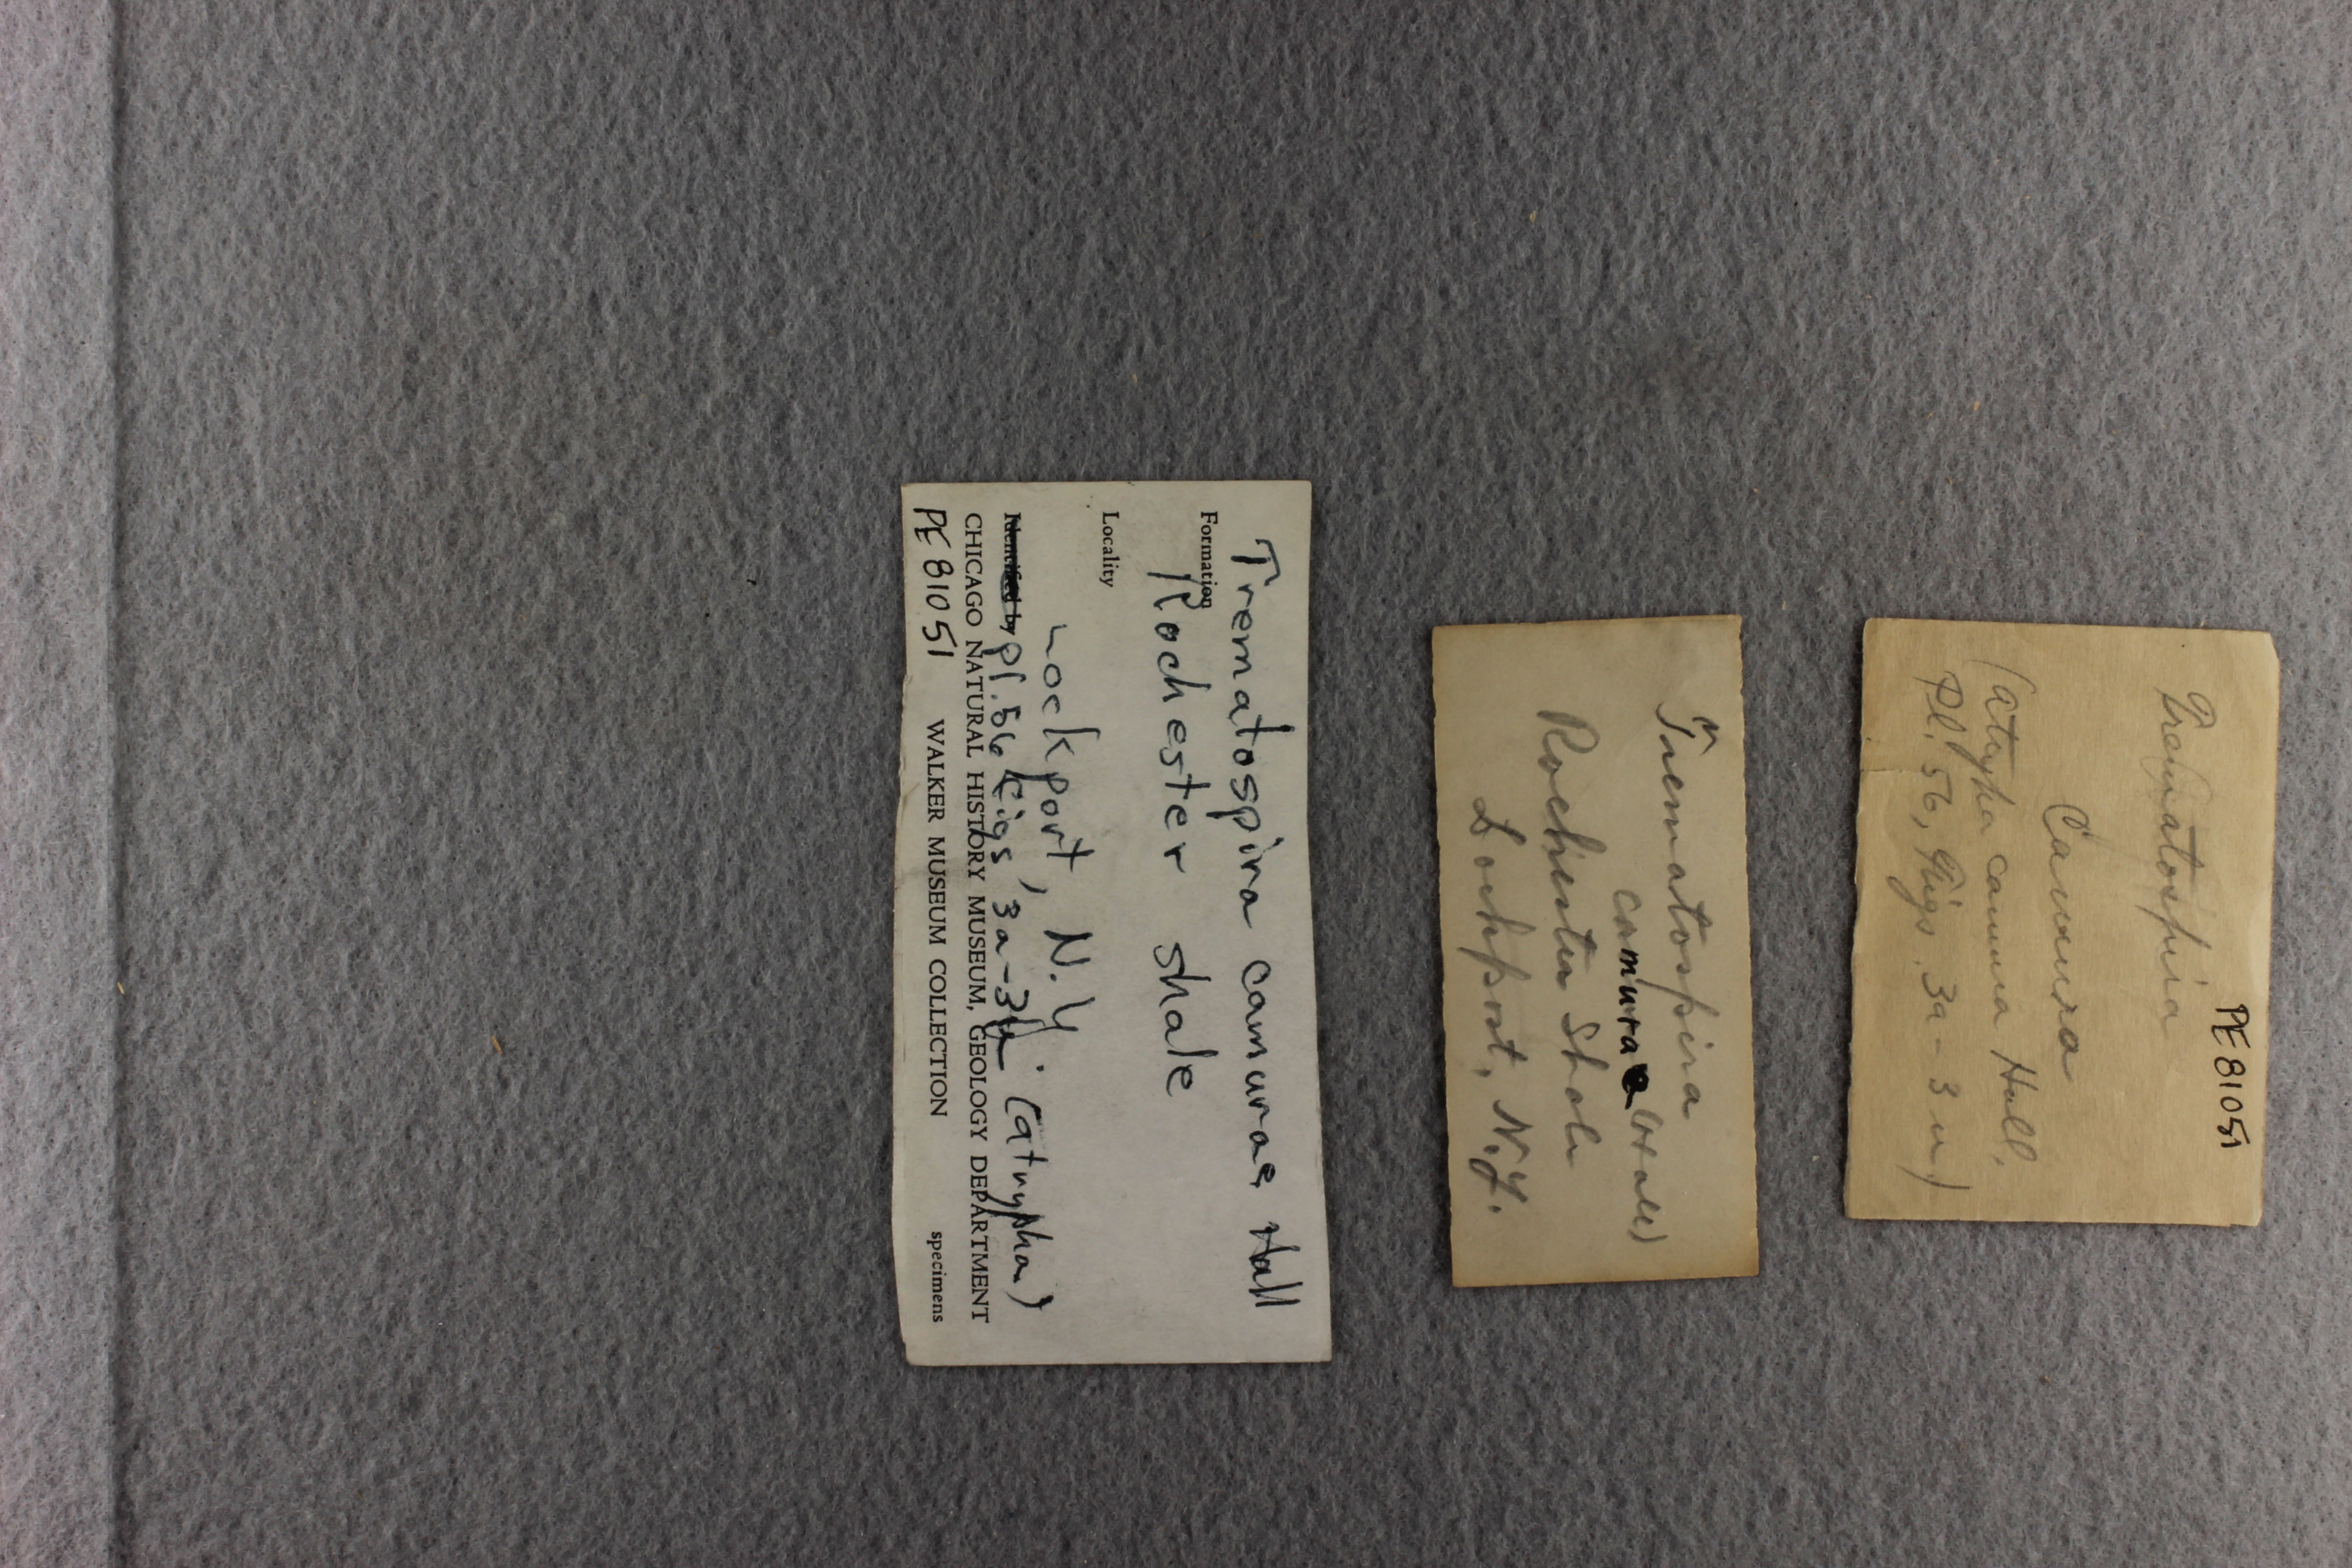 Trematospira camurae, Hall
Formation
Rochester shale
Locality
Lockport, N.Y.
Identified by pl. 56 Figs, 3a-3 (atrypha)
CHICAGO NATURAL HISTORY MUSEUM, GEOLOGY DEPARTMENT
PE 81051 WALKER MUSEUM COLLECTION specimens
Trematospira
camura (Hall)
Rochester Shale
Lockport, N.Y.
PE 81051
Trematospira
Camura
(Atrypha camura Hall.
Pl. 56, Figs. 3a-3u)